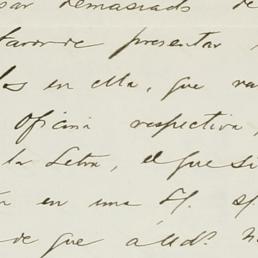 sar demasiado de
taron de presentar
los en ella, que va
Oficina respectiva
la Letra, el que si
en una
de que á Ud?